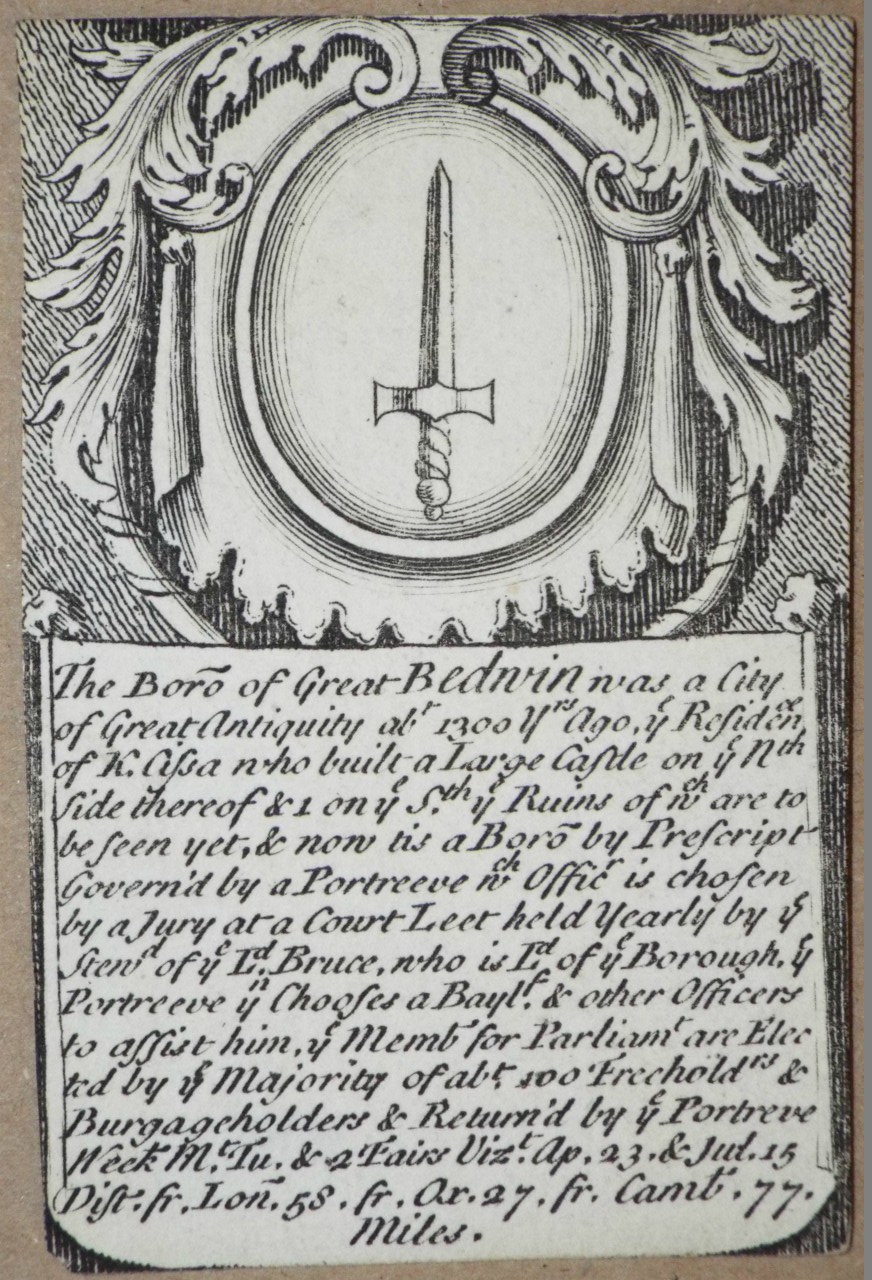 The Borõ of Great Bedwin was a City
of Great Antiquity abᵗ 1300 Yʳˢ Ago, yᵉ Residēⁿᶜᵉ
of K. Cißa who built a Large Caſtle on yᵉ Nᵗʰ
ſide thereof & 1 on yᵉ S.ᵗʰ yᵉ Ruins of wᶜʰ are to
be ſeen yet, & now tis a Borõ by Preſcript
Govern'd by a Portreeve wᶜʰ Officʳ is choſen
by a Jury at a Court Leet held Yearly by yᵉ
Stewᵈ of yᵉ Lᵈ. Bruce, who is Lᵈ of yᵉ Borough, yᵉ
Portreeve yⁿ Chooſes a Baylᶠ. & other Officers
to aſſist him, yᵉ Membˢ for Parliamᵗ are Elec
ted by yᵉ Majority of abᵗ. 100 Freeholdʳˢ &
Burgageholders & Return'd by yᵉ Portreve
Week Mᵗ. Tu. & 2 Fairs Vizᵗ. Ap. 23. & Jul. 15
Diſt. fr. Loñ. 58. fr. Ox. 27. fr. Camb. 77.
Miles.